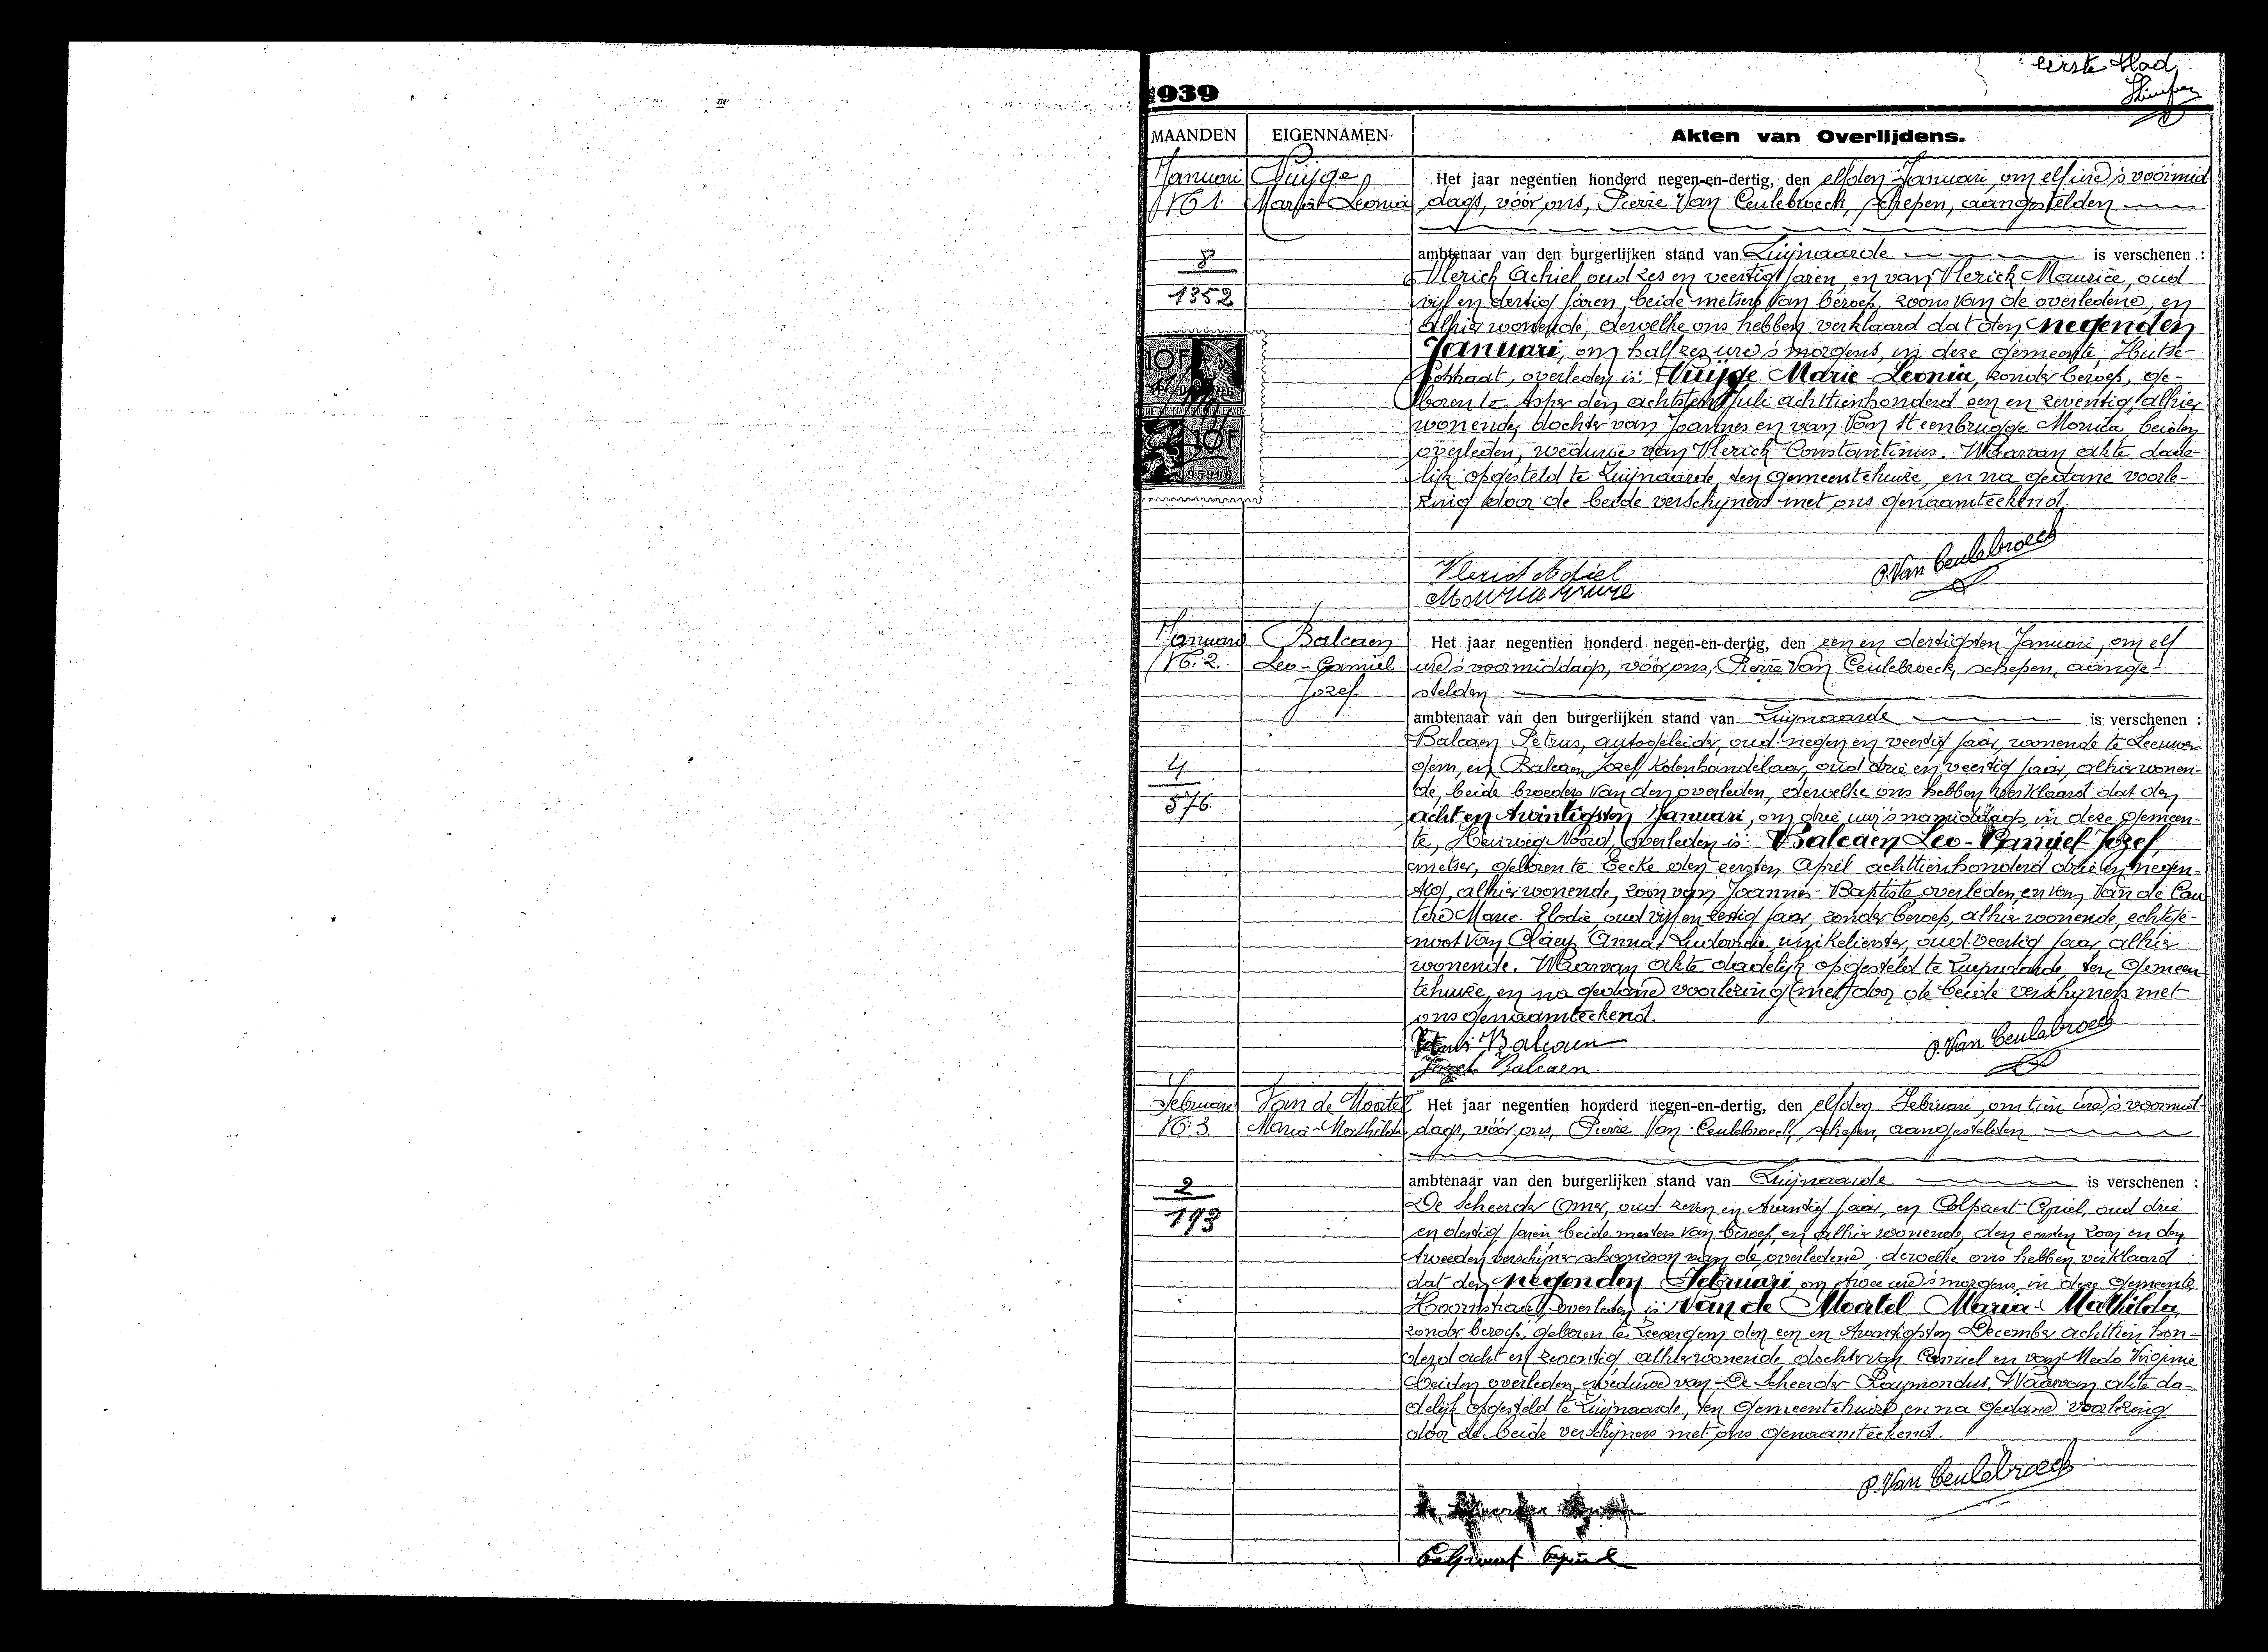 eerste blad
1939
MAANDEN EIGENNAMEN Akten van Overlijdens.
Januari
N° 1.
Huijge
Marie-Leonia
8
1352
10 F
10 F
Het jaar negentien honderd negen-en-dertig, den elfden Januari, om elf ure 's voormid
dags, vóór ons, Pierre Van Ceulebroeck, schepen, aangestelden
ambtenaar van den burgerlijken stand van Zwijnaarde is verschenen :
Vlerick Achiel, oud zes en veertig jaren, en van Vlerick Maurice, oud
vijf en dertig jaren, beide metsers van beroep, zoons van de overledene, en
alhier wonende, dewelke ons hebben verklaard dat den negenden
Januari, om half zes ure 's morgens, in deze gemeente, Hutse-
potstraat, overleden is: Huijge Marie-Leonia, zonder beroep, ge-
boren te Asper den achtsten Juli achttienhonderd een en zeventig, alhier
wonende, dochter van Joannes en van Van Steenbrugge Monica, beiden
overleden, weduwe van Vlerick Constantinus. Waarvan akte dade-
lijk opgesteld te Zwijnaarde, ten gemeentehuize, en na gedane voorle-
zing door de beide verschijners met ons genaamteekend.
Vlerick Achiel
P. Van Ceulebroeck
Januari
N° 2.
Balcaen
Leo-Camiel
Jozef
4
576.
Het jaar negentien honderd negen-en-dertig, den een en dertigsten Januari, om elf
ure 's voormiddags, vóór ons, Pierre Van Ceulebroeck, schepen, aange-
stelden
ambtenaar van den burgerlijken stand van Zwijnaarde is verschenen :
Balcaen Petrus, autogeleider, oud negen en veertig jaar, wonende te Leeuwer-
gem, en Balcaen Jozef, kolenhandelaar, oud drie en veertig jaar, alhier wonen-
de, beide broeders van den overleden, dewelke ons hebben verklaard dat den
acht en twintigsten Januari, om drie ure 's namiddags, in deze gemeen-
te, Heirweg Noord, overleden is: Balcaen Leo-Camiel-Jozef,
metser, geboren te Eecke den eersten April achttienhonderd drie en negen-
tig, alhier wonende, zoon van Joannes-Baptiste, overleden, en van Van de Cau
tere Marie-Elodie, oud vijf en zestig jaar, zonder beroep, alhier wonende, echtge-
noot van Claeys Anna-Ludovica, winkelierster, oud veertig jaar, alhier
wonende. Waarvan akte dadelijk opgesteld te Zwijnaarde, ten gemeen-
tehuize, en na gedane voorlezing (met) door de beide verschijners met
ons genaamteekend.
Balcaen
P. Van Ceulebroeck
Jozef Balcaen.
Februari
N° 3.
Van de Moortel
Maria-Mathilda
2
193
Het jaar negentien honderd negen-en-dertig, den elfden Februari, om tien ure 's voormid-
dags, vóór ons, Pierre Van Ceulebroeck, schepen, aangestelden
ambtenaar van den burgerlijken stand van Zwijnaarde is verschenen :
De Scheerder Omer, oud zeven en twintig jaar, en Colpaert Cyriel, oud drie
en dertig jaren, beide metsers van beroep, en alhier wonende, den eersten zoon en den
tweeden verschijner schoonzoon van de overledene, dewelke ons hebben verklaard
dat den negenden Februari, om twee ure 's morgens, in deze gemeente,
Hoornstraat, overleden is: Van de Moortel Maria-Mathilda,
zonder beroep, geboren te Zevergem den een en twintigsten December achttien hon-
derd acht en zeventig, alhier wonende, dochter van Camiel en van Medo Virginie
beiden overleden, weduwe van De Scheerder Raymondus. Waarvan akte da-
delijk opgesteld te Zwijnaarde, ten gemeentehuize, en na gedane voorlezing
door de beide verschijners met ons genaamteekend.
P. Van Ceulebroeck
Colpaert Cyriel